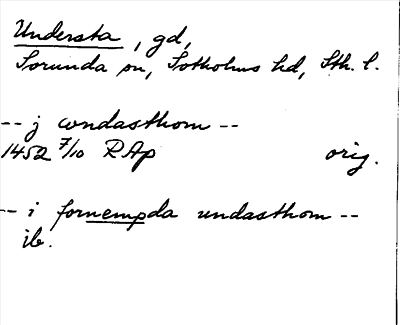 Understa, gd,
Sorunda sn, Sotholms hd, Sth. l.
-- j wndasthom --
1452 7/10 RAp orig.
-- i fornempda undasthom --
ib.